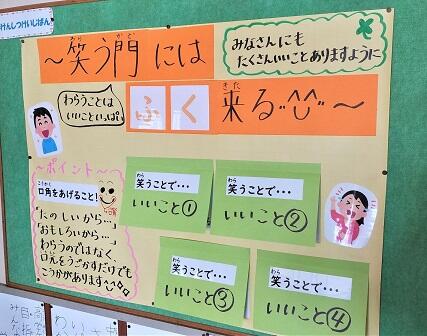 けんしつけいじばん
～笑う門には
わら
かど
みなさんにも
たくさんいいことありますように
わらうことは
いいこといっぱい
ふく来る＾＾～
きた
～ポイント～
こうかく
口角をあげること！
「たのしいから…」
「おもしろいから…」
わらうのではなく、
口元をうごかすだけでも
こうかがあります
わら
笑うことで…
いいこと①
わら
笑うことで…
いいこと②
わら
笑うことで…
いいこと③
わら
笑うことで…
いいこと④